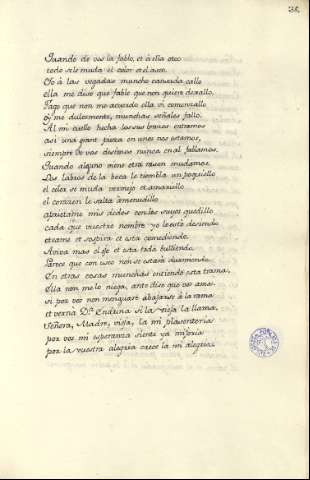 38.
Quando de vos la fablo, et á ella oteo
todo se le muda el color et el aseo.
Yo á las vegadas muncho cansada callo
ella me dise que fable que non quiera dexallo,
Fago que non me acuerdo ella vá comenzallo
Oyme dulcemente, munchas señales fallo.
Al mi cuello hecha los sus brazos entramos
asi una grant pieza en unos nos estamos,
siempre de vos desimos nunca en al fablamos.
Quando alguno viene otra rason mudamos.
Los labios de la boca le tiembla un poquiello
el color se muda vermejo et amariello
el corazon le salta amenudillo
aprietame mis dedos con los suyos quedillo
cada que vuestro nombre yo le esto desiendo
oteame et sospira et esta comediendo.
Aviva mas el ojo et esta toda bulliendo.
Parece que con usco non se estaria durmiendo.
En otras cosas munchas entiendo esta trama,
Ella non me lo niega, ante dise que vos ama.
si por vos non menguare abajarse á la rama
et verná Dª Endrina si la vieja la llama.
Señora, Madre, vieja, la mi plasenteria
por vos mi esperanza siente ya mejoria
por la vuestra alegria crece la mi alegria.